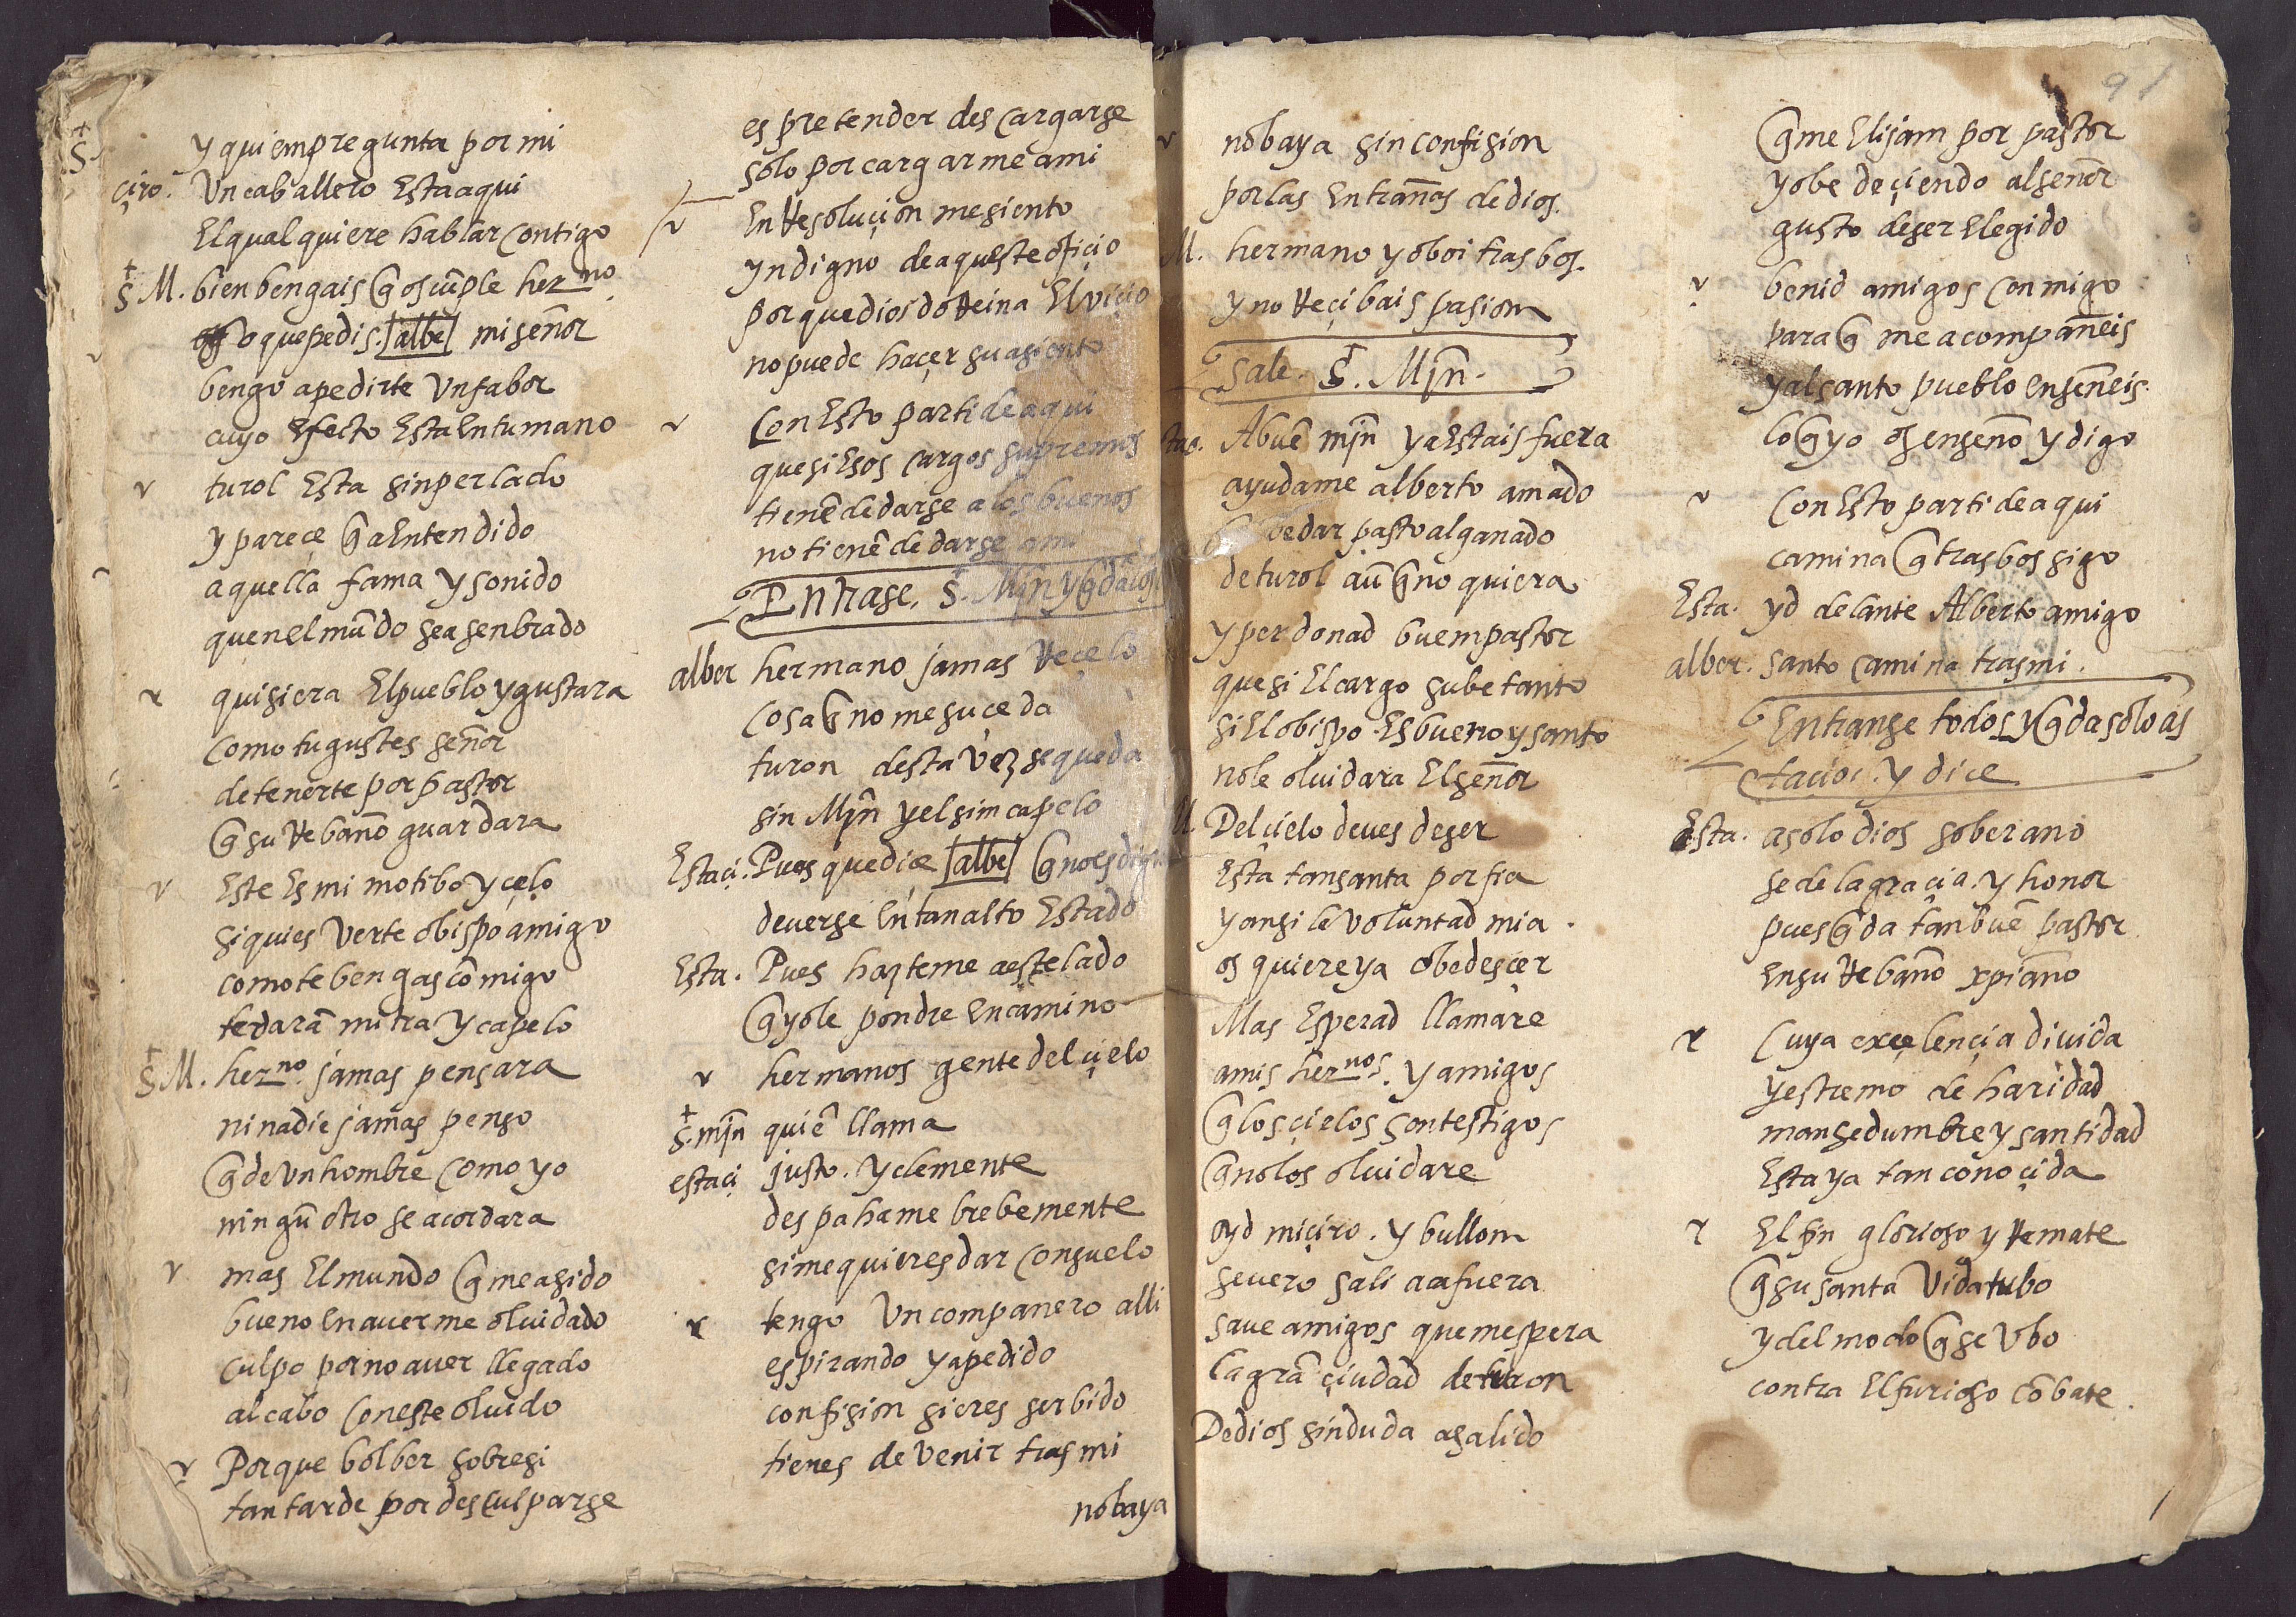 S. y quien pregunta por mi
çiro. Un caballero Esta aqui
El qual quiere hablar contigo
S M. bien bengais q̃ os cũple herno
o que pedis. albe mi señor
bengo a pedirte Un fabor
cuyo Efecto Esta En tu mano
turol Esta sin perlado
y pareçe q̃ a Entendido
aquella fama y sonido
quen el mũdo se a senbrado
quisiera El pueblo y gustara
como tu gustes señor
de tenerte por pastor
q̃ su Rebaño guardara
Este Es mi motibo y çelo
si quies Verte obispo amigo
como te bengas cõmigo
te darã mitra y capelo
S M. herno. jamas pensara
ni nadie jamas penso
q̃ de Un hombre como yo
ningũ otro se acordara
mas El mundo q̃ me a sido
bueno En auerme oluidado
culpo por no auer llegado
al cabo con este oluido
Porque bolber sobre si
tan tarde por desculparse
es pretender descargarse
solo por cargarme a mi
En Resoluçion me siento
yndigno de aqueste ofiçio
porque dios do Reina El viçio
no puede haçer su asiento
Con Esto parti de aqui
que si Esos cargos supremos
tienẽ de darse a los buenos
no tienẽ de darse a mi
Entrase. S. Mjn y q̃da los
alber hermano jamas Reçelo
cosa q̃ no me suçeda
turon desta Vez se queda
sin Mjn y el sin capelo
Estaçi. Pues que diçe albe q̃ no es digno
de verse En tan alto Estado
Esta. Pues hazteme a este lado
q̃ yo le pondre En camino
hermanos gente del çielo
S. mjn quiẽ llama
estaçi justo. y clemente
despahame brebemente
si me quieres dar consuelo
tengo Un companero alli
espirando y a pedido
confision si eres serbido
tienes de venir tras mi
no baya
no baya sin confision
por las Entrañas de dios.
M. hermano yo boi tras bos.
y no Reçibais pasion
Sale. S. Mjn.
A buẽ mjn ya Estais fuera
ayudame alberto amado
be dar pasto al ganado
de turol aũ q̃ no quiera
y perdonad buen pastor
que si El cargo sube tanto
si El obispo Es bueno y santo
no le oluidara El señor
M. Del çielo deues de ser
Esta tan santa porfia
y ansi le voluntad mia
os quiere ya obedesçer
Mas Esperad llamare
a mis hernos. y amigos
q̃ los çielos son testigos
q̃ no los oluidare
oyd mi çiro. y bullon
seuero sali a afuera
saue amigos que mespera
la grã çiudad de turon
De dios sin duda a salido
91
q̃ me Elijan por pastor
y obedeçiendo al señor
gusto de ser Elegido
benid amigos conmigo
para q̃ me acompañeis
y al santo pueblo enseñeis.
lo q̃ yo os enseño y digo
Con Esto parti de aqui
camina q̃ tras bos sigo
Esta. yd delante Alberto amigo
alber. santo camina tras mi.
Entranse todos y q̃da solo as
taçio. y dice
Esta. a solo dios soberano
se de la graçia. y honor
pues q̃da tan buẽ pastor
En su Rebaño xpiano
Cuya exçelençia diuida
y estremo de haridad
mansedumbre y santidad
Esta ya tan conoçida
El fin glorioso y Remate
q̃ su santa Vida tubo
y del modo q̃ se Vbo
contra El furioso cõbate.